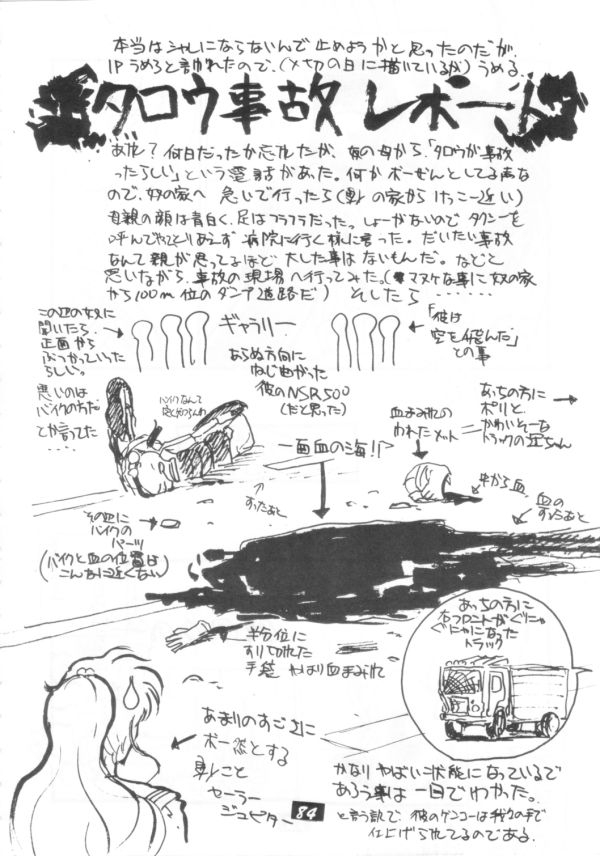 本当はシャレにならないんで止めようかと思ったのだが、
1Pうめろと言われたので、(〆切の日に描いているが)うめる。
タロウ事故レポート
あれ?何日だったか忘れたが、奴の母から、「タロウが事故
ったらしい」という電話があった。何かボーぜんとしてる声な
ので、奴の家へ急いで行ったら
の家からけっこー近い)
母親の顔は青白く、足はフラフラだった。しょーがないのでタクシーを
呼んでやってとりあえず病院に行く様に言った。だいたい事故
なんて親が思ってるほど大した事はないもんだ。などと
思いながら、事故の現場へ行ってみた。(マヌケな事に奴の家
から100m位のダンプ道路だ) そしたら‥‥‥
この辺の奴に
聞いたら、
正面から
ぶつかっていった
らしい。
悪いのは
バイクの方だ
とか言ってた
‥‥
ギャラリー
「彼は
空を飛んだ」
との事
あらぬ方向に
ねじ曲がった
彼のNSR500
(だと思った)
バイクなんて
血まみれの
われたメット
あっちの方に
ポリと
かわいそーな
トラックの運ちゃん
一面血の海!!
中から血
血の
すったあと
その辺に
バイクの
パーツ
(バイクと血の位置は
こんなに近くない)
半分位に
すり切れた
手袋 やはり血まみれ
あっちの方に
右フロントがぐにゃ
ぐにゃになった
トラック
あまりのすごさに
ボー然とする
こと
セーラー
ジュピター
かなりやばい状態になっているで
あろう事は一目でわかった。
と言う訳で、彼のゲンコーは我々の手で
仕上げられてるのである。
84